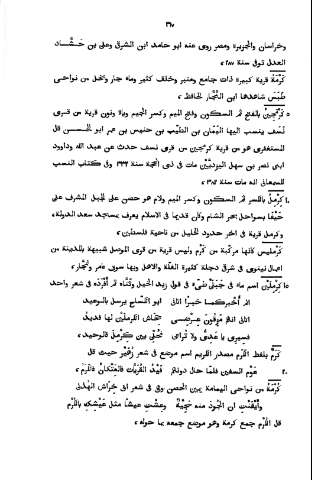 ٢٦٧
وخراسان والجزيرة ومصر روى عنه ابو حامد ابن الشرقى وعلى بن حَمْشَاد
العدل توفى سنة ٢٨٧،
كَرْمَة قرية كبيرة ذات جامع ومنبر وخلف كثير وماء جار ونخل من نواحى
طَبَس شاهدها ابن النَّجار الحافظ،
كَرْمُجِين بالفتح ثم السكون وفتح الميم وكسر الجيم وياء ونون قرية من قرى
نَسَف ينسب اليها اليمان بن الطَّيِّب بن حنيس بن عمر ابو الحسن قال
المستغفرى هو من قرية كرمجين من قرى نسف حدث عن عبد الله وداوود
ابنى نصر بن سهل البزديَّين مات فى ذى الحجة سنة ٣٣٣ وفى كتاب النسب
للسمعانى انه مات سنة
كِرْمِل بالكسر ثم السكون وكسر الميم ولام هو حصن على الجبل المشرف على
حَيْفَا بسواحل بحر الشام وكان قديما فى الاسلام يعرف بمسجد سعد الدولة،
وكرمل قرية فى اخر حدود الخليل من ناحية فلسطين،
كَرْمَلِيس كانها مركبة من كَرْم وليس قرية من قرى الموصل شبيهة بالمدينة من
اعمال نينوى فى شرقى دجلة كثيرة الغلّة والاهل وبها سوق عامر وتجار،
كِرْمِلَيْن اسم ماء فى جَبَلَىْ طَىّء فى قول زيد الخيل وثناه ثم أَفْرَدَه فى شعر واحد
الم أُخبركما خبرًا اتانى ابو الكسَّاح يرسل بالوعيد
اتانى انهم مَزِقُون عِرضى جحاش الكرملين لها فديد
فسيرى يا عَدِىّ ولا تُراعى فحُلّى بين كرمل فالوحيد،
كَرْم بلفظ الكرم مصدر الكريم اسم موضع فى شعر زُهَيْر حيث قال
عَوْم السفين فلما حال دونهم فَيْدُ القُرَيَّات فالعتكان فالكرم،
كَرْمَة من نواحى اليمامة بين الحصن وفى شعر ابى خِرَاش الهُذَلى
وأَيْقَنْتُ ان الجود منه سَجِيَّةٌ وعِشْتُ عيشًا مثل عَيْشك بالكَرْم
قال الكرم جمع كرمة وهو موضع جمعه بما حوله،